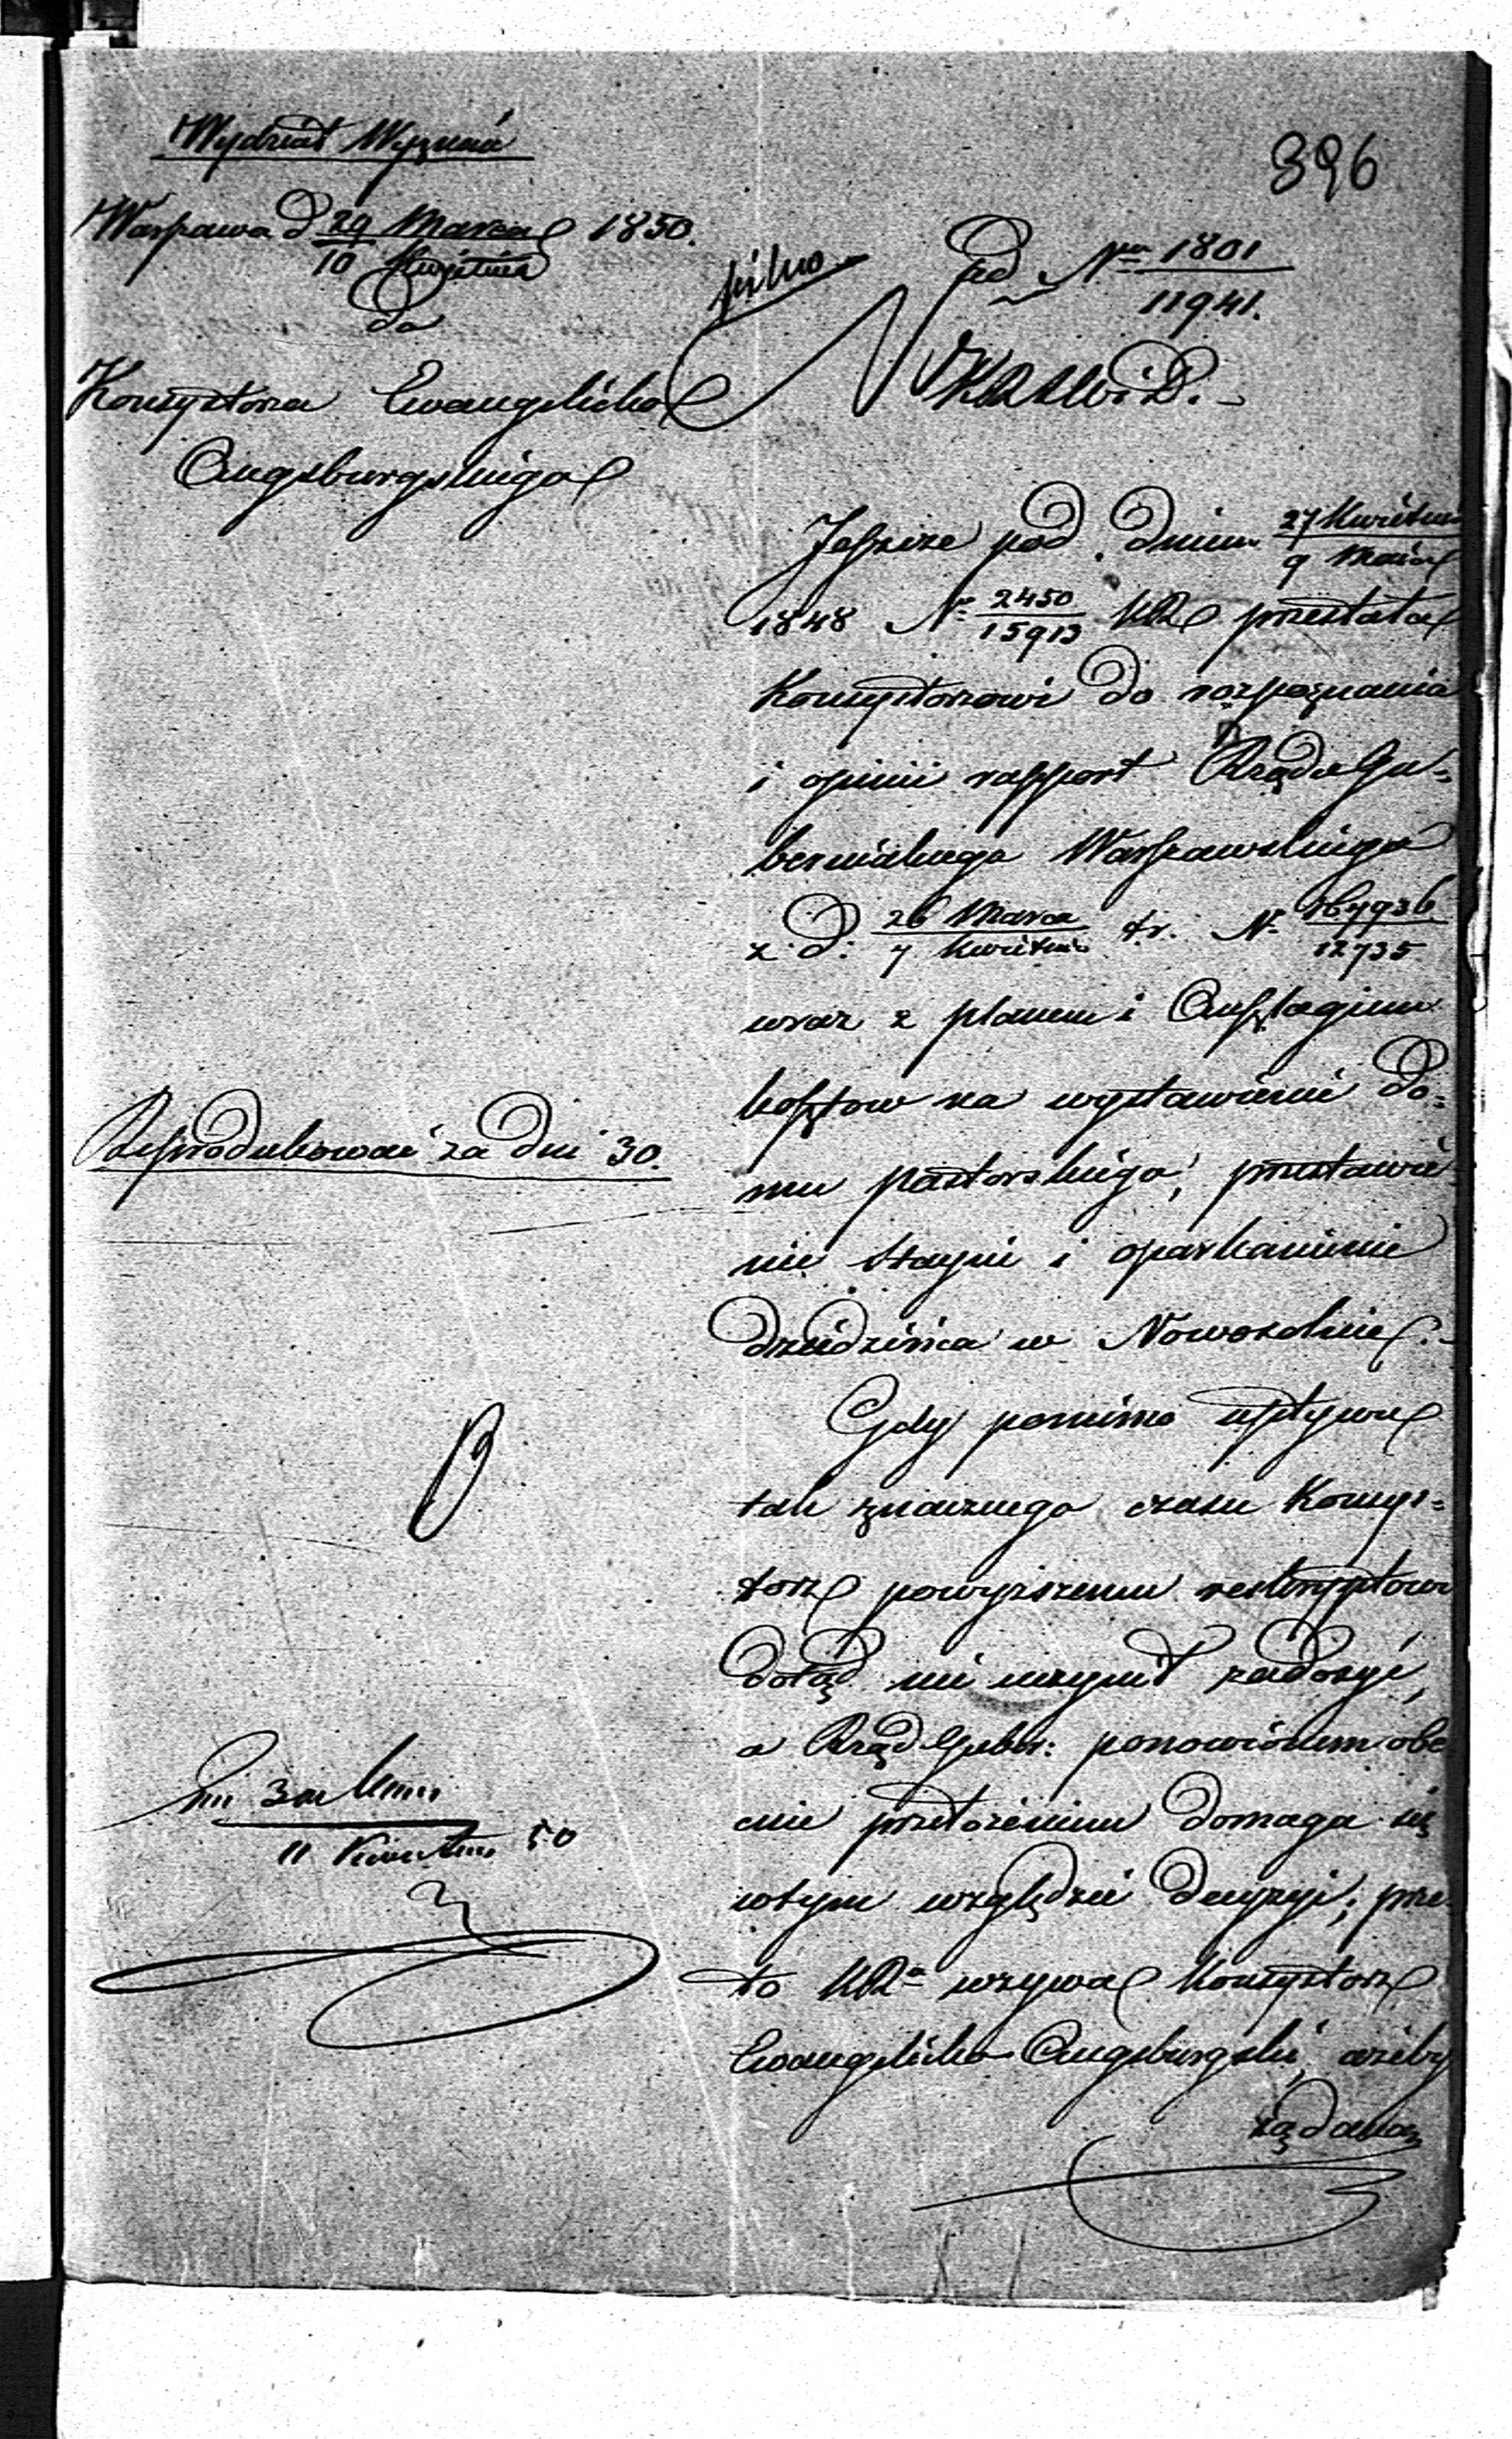 396
Wydział Wyznań
Warszawa d 29 Marca 1850.
10 Kwietnia
do
Konsystorza Ewangelicko
Augsburgskiego
pilno
pod Nrm 1801
11941.
Jeszcze pod dniem 27 Kwietnia
9 Maia
1848 Nr 2450 KR przesłała
15913
Konsystorzowi do rozpoznania
i opinii rapport Rządu Gu=
bernialnego Warszawskiego
z d. 26 Marca t.r. N. 
7 Kwietnia 12735
wraz z planem i Anszlagiem
kosztow na wystawienie do=
mu pastorskiego, przestawie
nie stayni i oparkanienie
dziedzińca w Nowosolnie.
Gdy pomimo upływu
tak znacznego czasu Konsys=
torz powyższemu reskryptowi
dotąd nie uczynił zadosyć,
a Rząd Guber: ponowionem obe
cnie przełożeniem domaga się
wtym względzie decyzyi; prze
to KRa wzywa Konsystorz
Ewangelicko Augsburgski, ażeby
żądaną
Reprodukować za dni 30.
11 Kwietnia 50